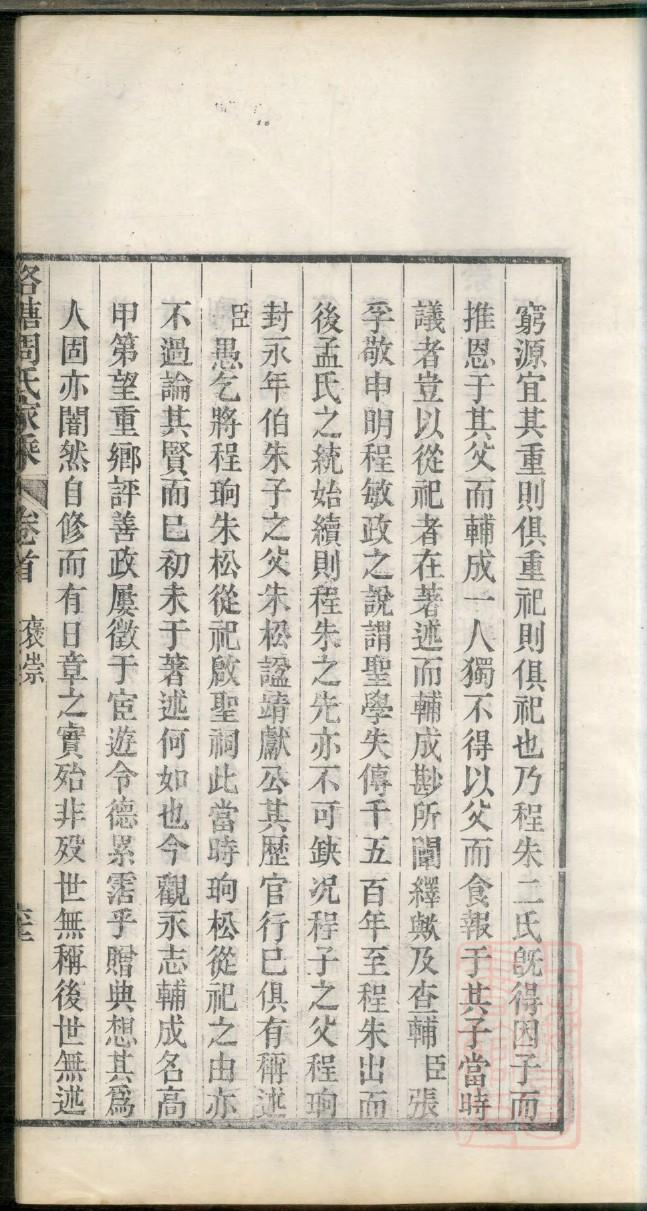 窮源宜其重則俱重祀則俱祀也乃程朱二氏旣得因子而
推恩于其父而輔成一人獨不得以父而食報于其子當時
議者豈以從祀者在著述而輔成尠所闡繹歟及查輔臣張
孚敬申明程敏政之說謂聖學失傳千五百年至程朱出而
後孟氏之統始續則程朱之先亦不可缺况程子之父程珦
封永年伯朱子之父朱松謚靖獻公其歷官行已俱有稱述
臣愚乞將程珦朱松從祀啟聖祠此當時珦松從祀之由亦
不過論其賢而已初未于著述何如也今觀永志輔成名高
甲第望重鄉評善政屢徵于宦遊令德累霑乎贈典想其爲
人固亦闇然自修而有日章之實殆非歿世無稱後世無述
周氏家乘 卷首 褒崇